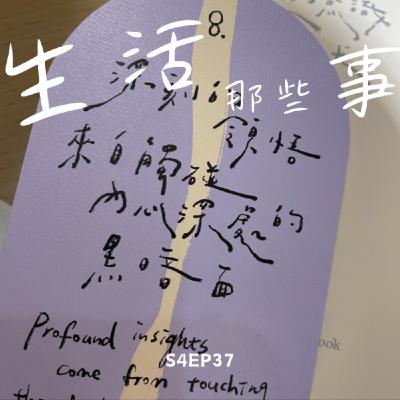 8.
生活那些事
深刻的
領悟
來自觸碰
內心深處的
黑暗面
Profound insights
S4EP37
come from touching
ook